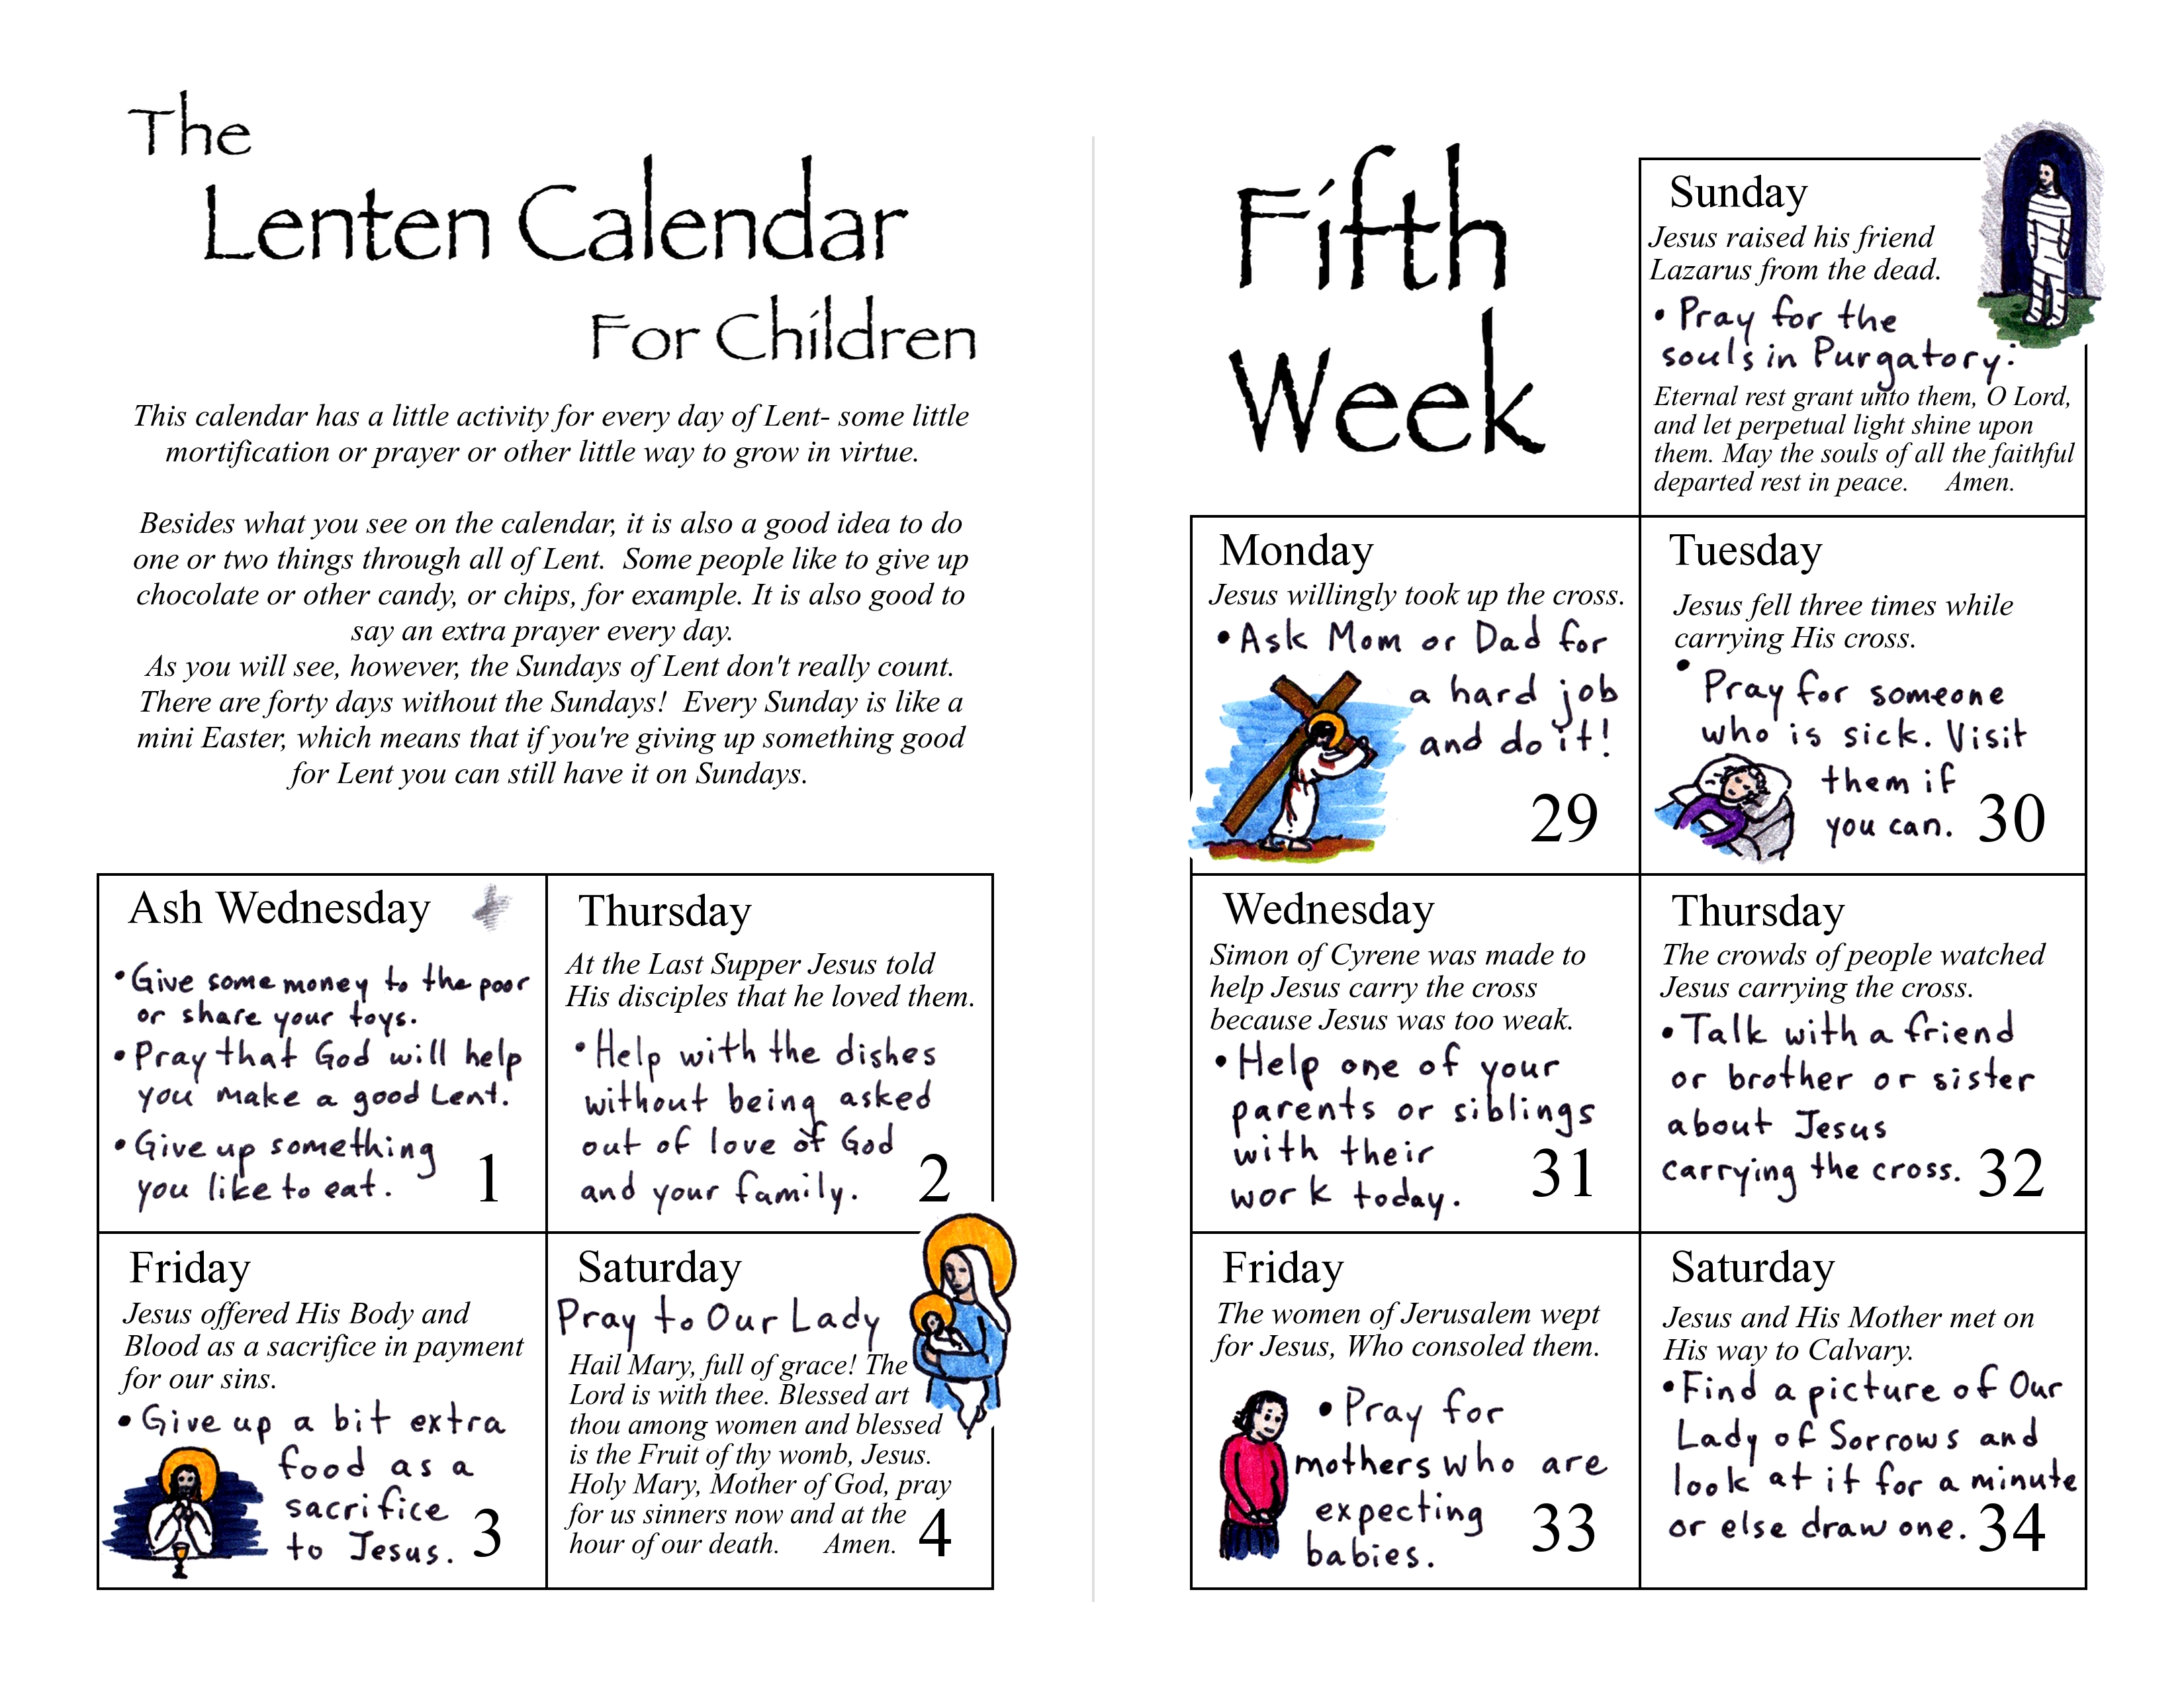 The
Lenten Calendar
For Children
This calendar has a little activity for every day of Lent- some little
mortification or prayer or other little way to grow in virtue.
Besides what you see on the calendar, it is also a good idea to do
one or two things through all of Lent.  Some people like to give up
chocolate or other candy, or chips, for example. It is also good to
say an extra prayer every day.
As you will see, however, the Sundays of Lent don't really count.
There are forty days without the Sundays!  Every Sunday is like a
mini Easter, which means that if you're giving up something good
for Lent you can still have it on Sundays.
Ash Wednesday
•Give some money to the poor
or share your toys.
•Pray that God will help
you make a good Lent.
•Give up something
you like to eat.
1
Thursday
At the Last Supper Jesus told
His disciples that he loved them.
•Help with the dishes
without being asked
out of love of God
and your family.
2
Friday
Jesus offered His Body and
Blood as a sacrifice in payment
for our sins.
•Give up a bit extra
food as a
sacrifice
to Jesus.
3
Saturday
Pray to Our Lady
Hail Mary, full of grace! The
Lord is with thee. Blessed art
thou among women and blessed
is the Fruit of thy womb, Jesus.
Holy Mary, Mother of God, pray
for us sinners now and at the
hour of our death.     Amen.
4
Fifth
Week
Sunday
Jesus raised his friend
Lazarus from the dead.
•Pray for the
souls in Purgatory:
Eternal rest grant unto them, O Lord,
and let perpetual light shine upon
them. May the souls of all the faithful
departed rest in peace.     Amen.
Monday
Jesus willingly took up the cross.
•Ask Mom or Dad for
a hard job
and do it!
29
Tuesday
Jesus fell three times while
carrying His cross.
•Pray for someone
who is sick. Visit
them if
you can.
30
Wednesday
Simon of Cyrene was made to
help Jesus carry the cross
because Jesus was too weak.
•Help one of your
parents or siblings
with their
work today.
31
Thursday
The crowds of people watched
Jesus carrying the cross.
•Talk with a friend
or brother or sister
about Jesus
carrying the cross.
32
Friday
The women of Jerusalem wept
for Jesus, Who consoled them.
•Pray for
mothers who are
expecting
babies.
33
Saturday
Jesus and His Mother met on
His way to Calvary.
•Find a picture of Our
Lady of Sorrows and
look at it for a minute
or else draw one.
34